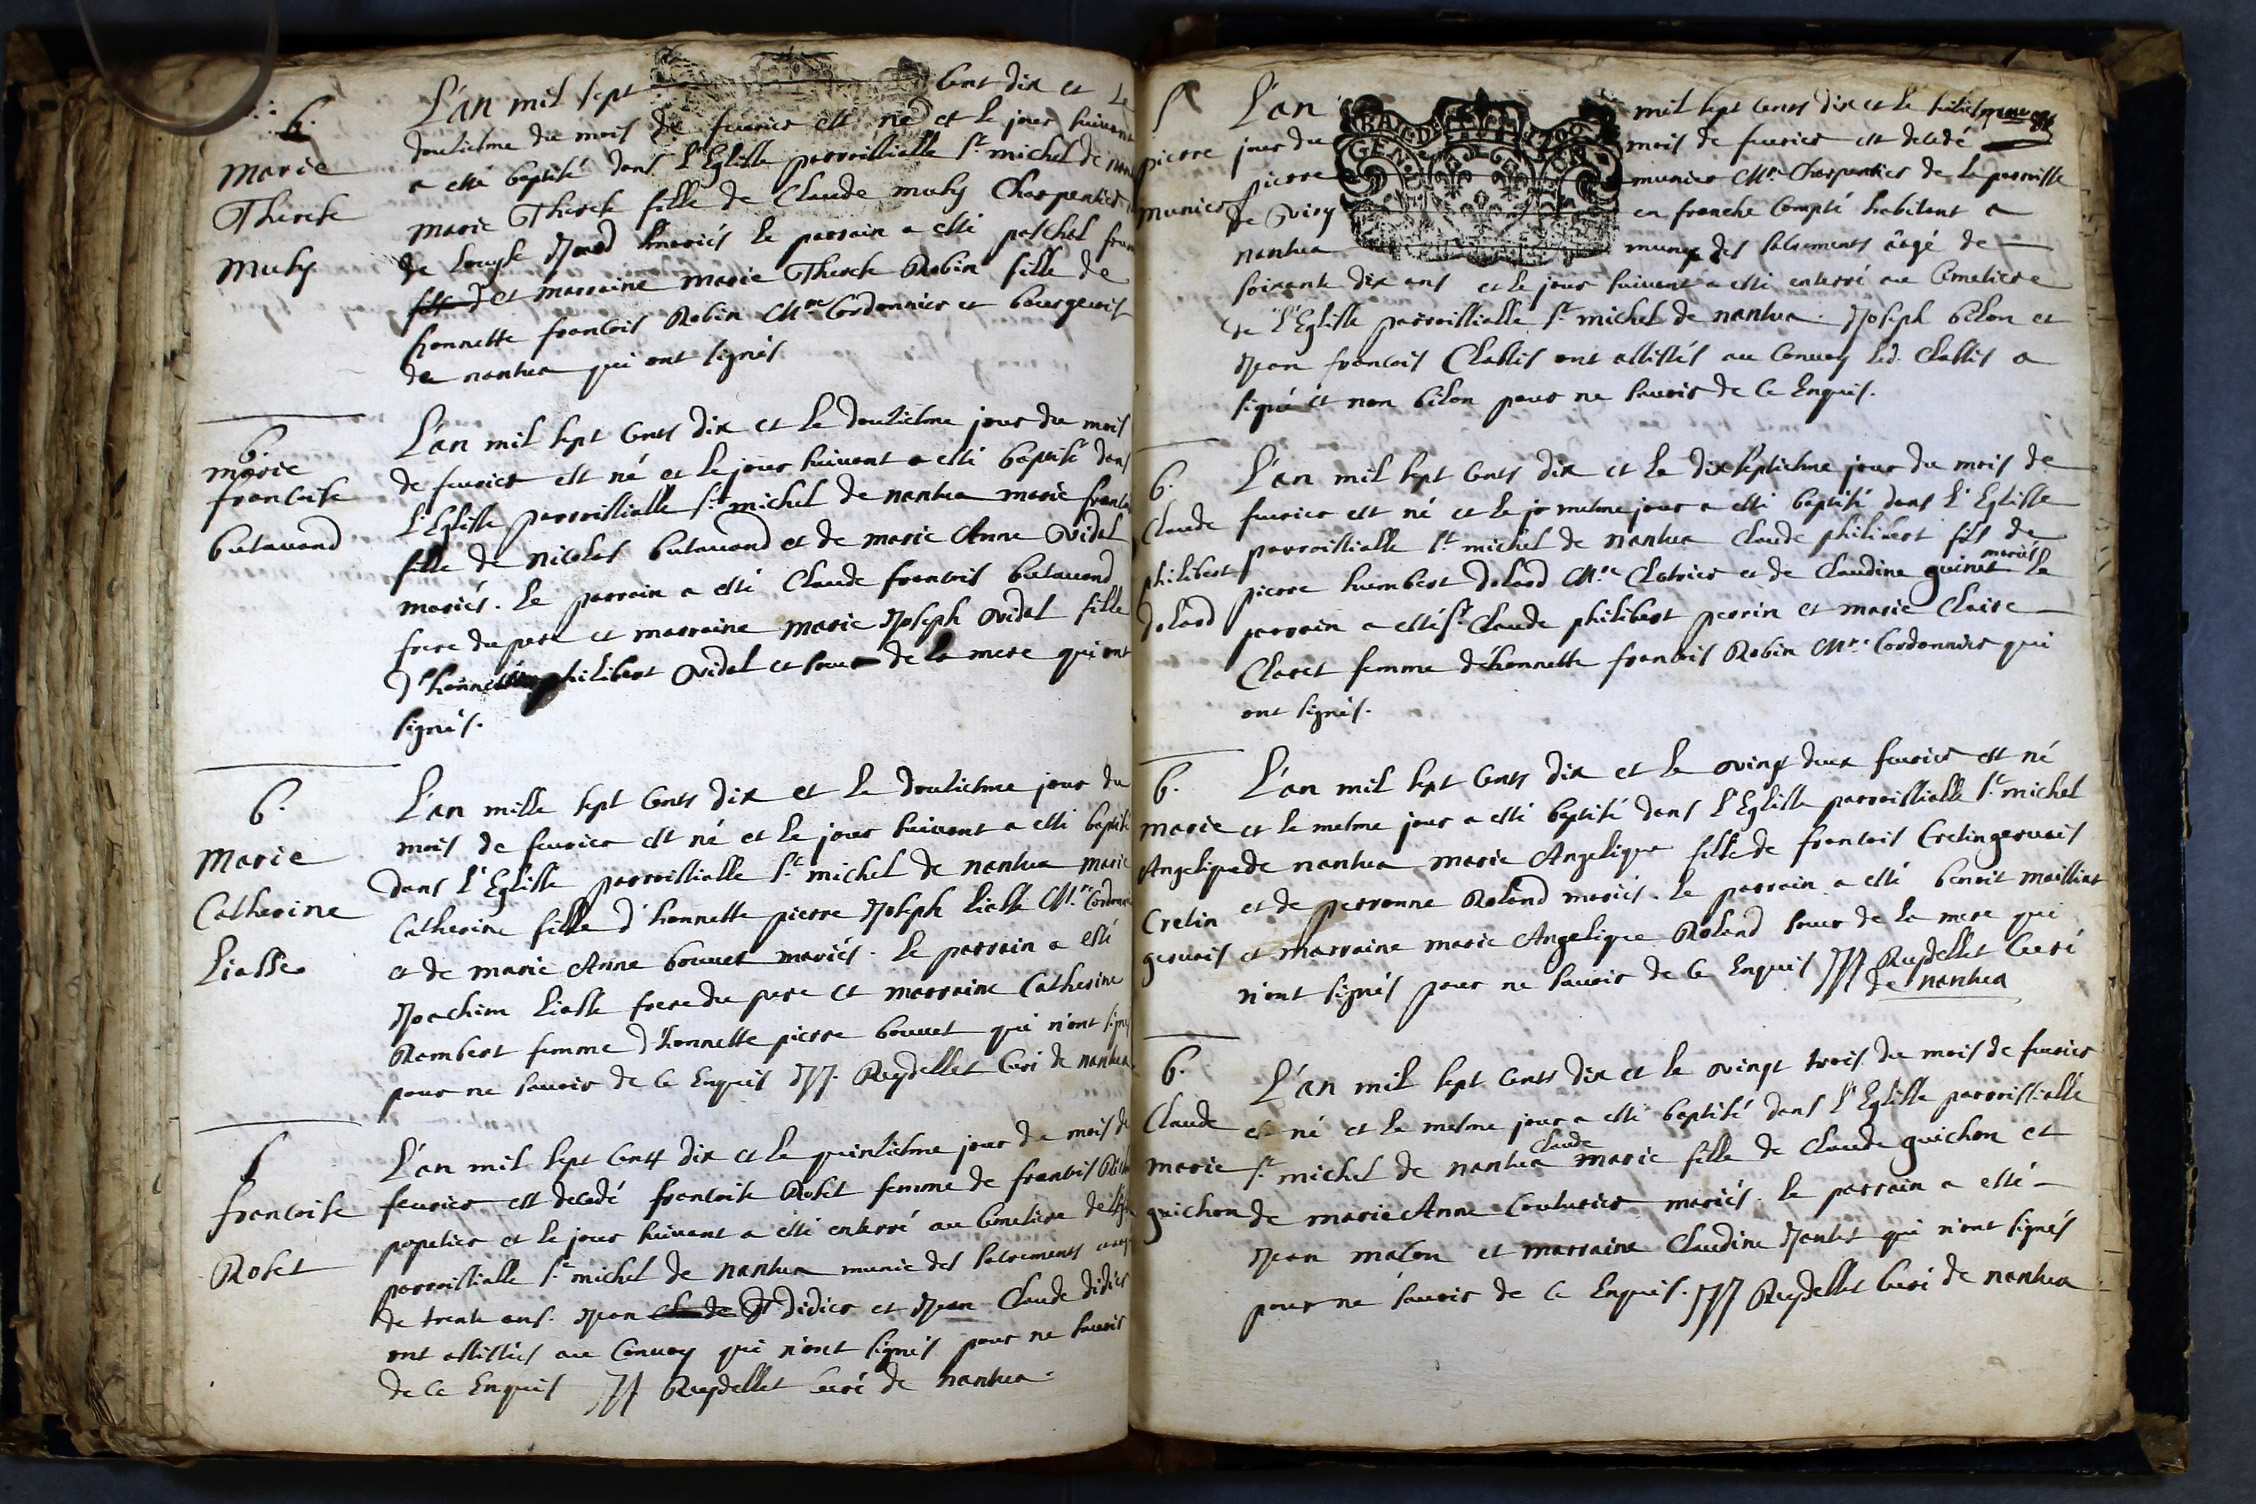 6.
Marie
Therese
Muty
L'an mil sept cent dix et le
douziesme du mois de feurier est né et le jour suiuant
a esté baptisé dans l'Eglise parroissialle St michel de
Marie Therese fille de Claude muty Charpentier
de mariés le parrain a esté paschal
et marraine marie Therese Robin fille de
honnette francois Robin Mre Cordonnier et bourgeois
de nantua qui ont signés
6.
marie
francoise
butauand
L'an mil sept cents dix et le douziesme jour du mois
de feurier est né et le jour suiuant a esté baptisé dans
l'Eglise parroissialle St michel de nantua marie
fille de nicolas butauand et de marie Anne Vidal
mariés. le parrain a esté Claude francois butauand
frere du pere et marraine marie Joseph Vidal fille
d'honnette philibert Vidal et soeur de la mere qui ont
signés.
6.
Marie
Catherine
Liasse
L'an mille sept cents dix et le douziesme jour du
mois de feurier est né et le jour suiuant a esté baptisé
dans l'Eglise parroissialle St michel de nantua marie
Catherine fille d'honnette pierre Joseph liasse Mre
et de marie Anne bouuet mariés. le parrain a esté
Joachim liasse frere du pere et marraine Catherine
Rambert femme d'honnette pierre bouuet qui n'ont signé
pour ne sauoir de ce Enquis JJ. Reydellet Curé de nantua
S
francoise
Roset
L'an mil sept cents dix et le quinziesme jour du mois de
feurier est decedé francoise Roset femme de francois
papetier et le jour suiuant a esté enterré au Cemetiere de
parroissialle St michel de nantua munie des sacrements
de trente ans. Jean didier et Jean Claude didier
ont assistés au Conuoy qui n'ont signés pour ne sauoir
de ce Enquis JJ Reydellet Curé de nantua.
S
pierre
munier
L'an mil sept cents dix et le
jour du mois de feurier est decedé
pierre munier Mre Charpentier de la parroisse
de Viry en franche Compté habitant a
nantua muny des sacrements aagé de
soixante dix ans et le jour suiuant a esté enterré au Cemetiere
de l'Eglise parroissialle St michel de nantua. Joseph bilon et
Jean francois Chassis ont assistés au Conuoy led. Chassis a
signé et non bilon pour ne sauoir de ce Enquis.
6.
Claude
philibert
Dolard
L'an mil sept cents dix et le dixseptiesme jour du mois de
feurier est né et le jo mesme jour a esté baptisé dans l'Eglise
parroissialle St michel de nantua Claude philibert fils de
pierre humbert dolard Mre et de Claudine guinet mariés le
parrain a esté Sr Claude philibert perrin et marie Claire
Claret femme d'honnette francois Robin Mre Cordonnier qui
ont signés.
6.
marie
Angelique
Cretin
geruais
L'an mil sept cents dix et le vingt deux feurier est né
et le mesme jour a esté baptisé dans l'Eglise parroissialle St michel
de nantua marie Angelique fille de francois Cretin geruais
et de perronne Roland mariés. le parrain a esté benoit maissiat
et marraine marie Angelique Roland soeur de la mere qui
n'ont signés pour ne sauoir de ce Enquis JJ Reydellet Curé
de nantua
6.
Claude
marie
guichon
L'an mil sept cents dix et le vingt trois du mois de feurier
est né et le mesme jour a esté baptisé dans l'Eglise parroissialle
St michel de nantua Claude marie fille de Claude guichon et
de marie Anne Couturier mariés. le parrain a esté
Jean macon et marraine Claudine Jantet qui n'ont signés
pour ne sauoir de ce Enquis. JJ Reydellet Curé de nantua